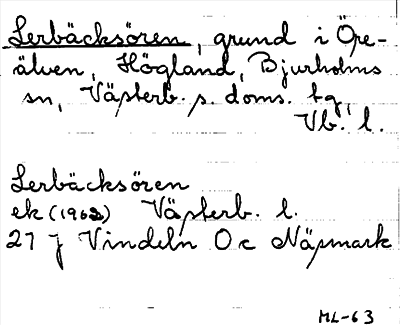 Lerbäcksören, grund i Öre-
älven, Högland, Bjurholms
sn, Västerb. s. doms. tg,
Vb. l.
Lerbäcksören
ek (1962) Västerb. l.
21 J Vindeln O c Näsmark
ML-63